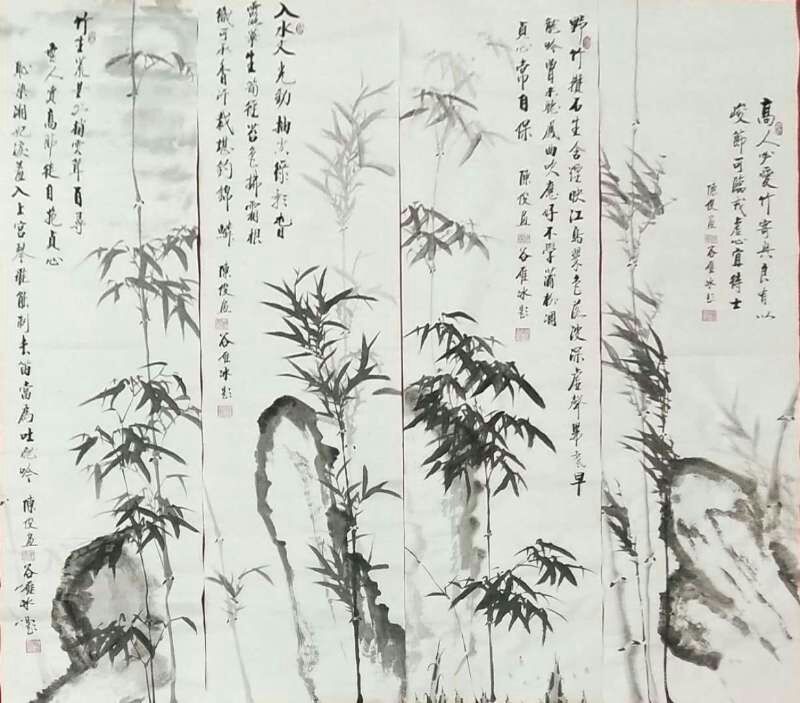 高人必愛竹寄興良有以
峻節可臨戎虛心宜待士
陳俊画 谷冰題
野竹攢石生含煙映江島翠色落波深虛聲帶寒早
龍吟曾未聽鳳曲吹應好不學蒲柳凋
貞心常自保 陳俊画 谷冰題
入水文光動抽空綠影春
露華生筍徑苔色拂霜根
織可承香汗裁堪釣錦鱗 陳俊画 谷冰題
竹生荒野外梢雲聳百尋
無人賞高節徒自抱貞心
恥染湘妃淚羞入上宮琴誰能制長笛當為吐龍吟 陳俊画 谷冰題